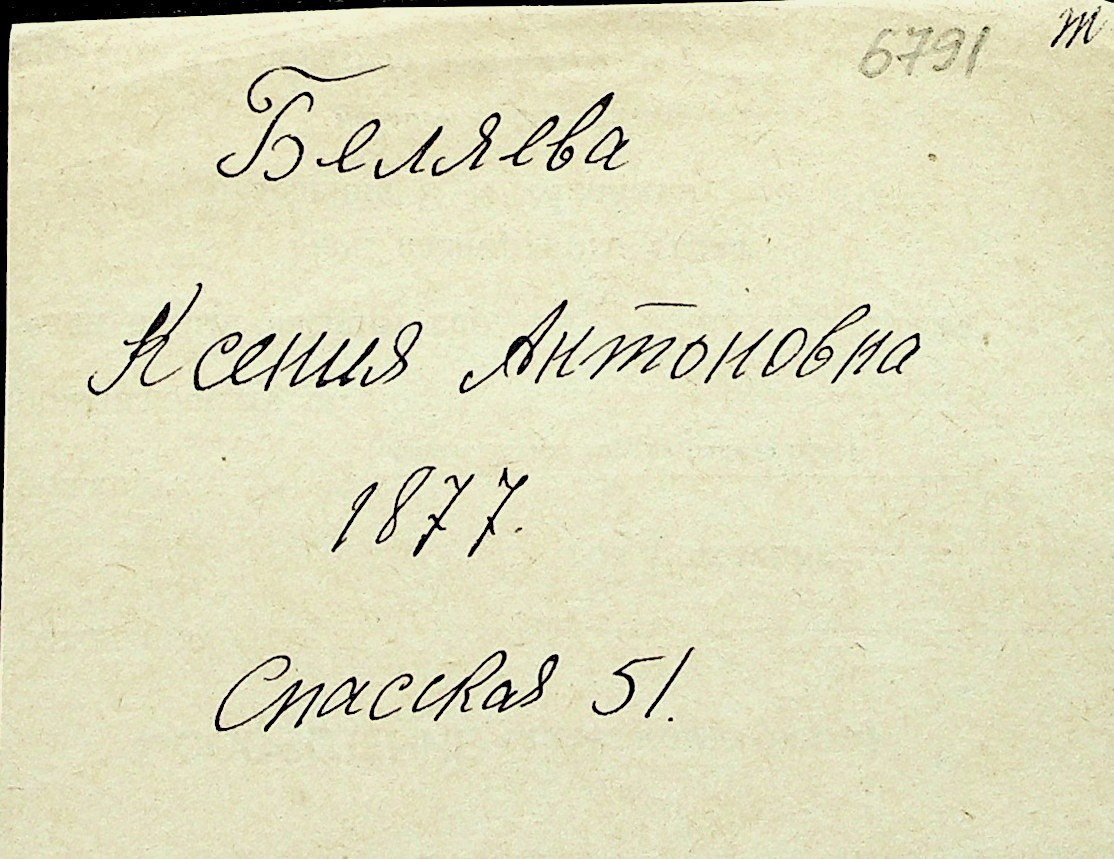 6791 т
Беляева
Ксения Антоновна
1877.
Спасская 51.